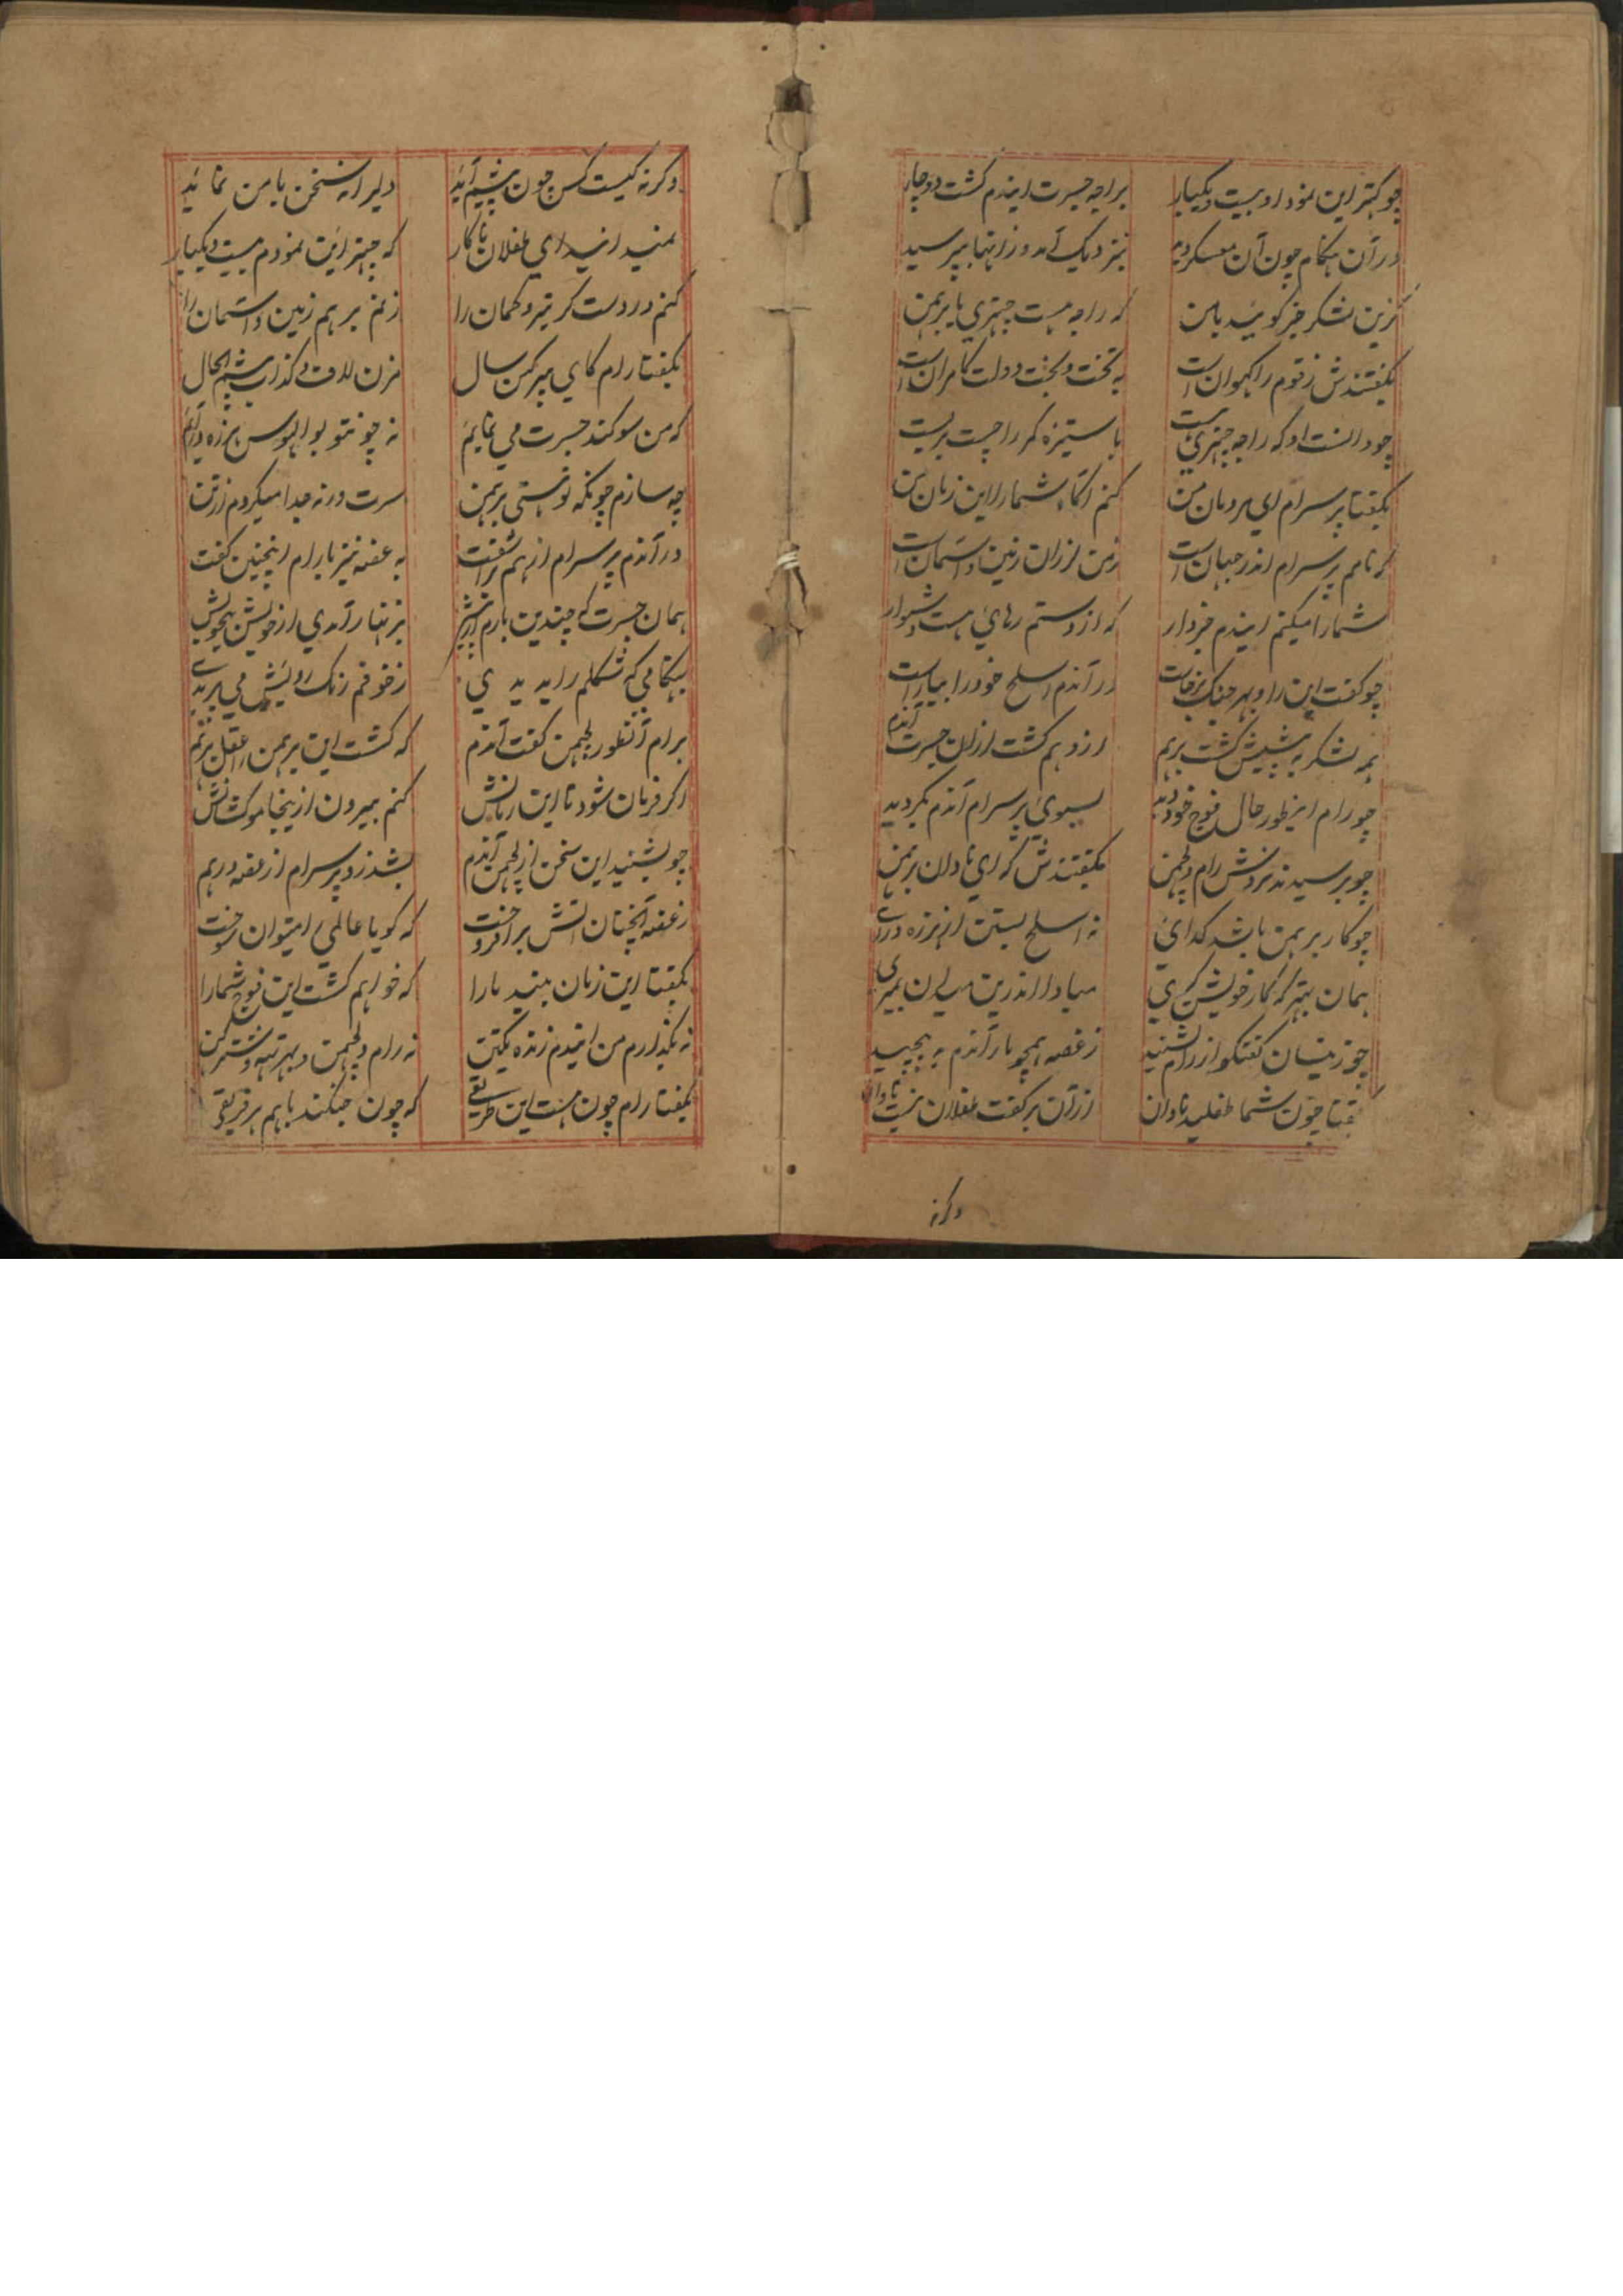 چو کهتر این نمود او بیست و یکبار براجه جسرت ایندم کشت دوچار
در آن هنکام چون آن معسکر دید بنزدیک آمد و زانها بپرسید
کزین لشکر خبر کوئید با من که راجه هست چهتری یا برهمن
بکفتندش ز قوم راکهوان است به تخت و بخت و دولت کامران است
چو دانست او که راجه چهتری هست باستیزه کمر را چست بر بست
بکفتا پرسرام ای مردمان من کنم اکاه شما را این زمان من
که نامم پرسرام اندر جهان است ز من لرزان زمین و آسمان است
شما را میکنم ایندم خبردار که از دستم رهائی هست دشوار
چو کفت این را و بهر جنک برخاست در آندم اسلح خود را بیاراست
همه لشکر به پیشش کشت برهم ازو هم کشت لرزان جسرت آندم
چو رام اینطور حال فوج خود دید بسوی پرسرام آندم بکردید
چو برسیدند نزدش رام و لچمن بکفتندش که ای نادان برهمن
چو کار برهمن باشد کدائی نه اسلح بستن از هرزه درائی
همان بهتر که کار خویش کیری مبادا اندرین میدان بمیری
چو زینسان کفتکو از رام بشنید ز غصه همچو مار آندم به پیچید
بکفتا چون شما طفلید نادان از آن بر کفت طفلان نیست تاوان
وکرنه
وکرنه کیست کس چون پیشم آید دلیرانه سخن با من نماید
نمیدانید ای طفلان ناکار که چهتر این نمودم بیست و یکبار
کنم در دست کر تیر و کمان را زنم بر هم زمین و آسمان را
بکفتا رام کای پیر کهن سال مزن لاف و کذاف پیشم الحال
که من سوکند جسرت می نمایم نه چون تو بوالهوس هرزه درایم
چه سازم چونکه تو هستی برهمن سرت ورنه جدا میکردم از تن
در آندم پرسرام از هم بر آشفت به غصه نیز با رام اینچنین کفت
همان جسرت که چندین بارم از پیش بزنهار آمدی از خویش بیخویش
بهنکامی که شکلم را بدیدی ز خوفم رنک رویش می پریدی
برام آنطور لچمن کفت آندم که کشت این برهمن را عقل برهم
اکر فرمان شود تا این زمانش کنم بیرون ازینجا موکشانش
چو بشنید این سخن از لچمن آندم بشد زو پرسرام از غصه درهم
ز غصه آنچنان آتش برافروخت که کویا عالمی را میتوان سوخت
بکفتا این زمان بینید ما را که خواهم کشت این فوج شما را
نه بکذارم من ایندم زنده یکتن نه رام و لچمن و بهرتهه و شترکن
بکفتا رام چون هست این طریقی که چون جنکند با هم هر فریقی